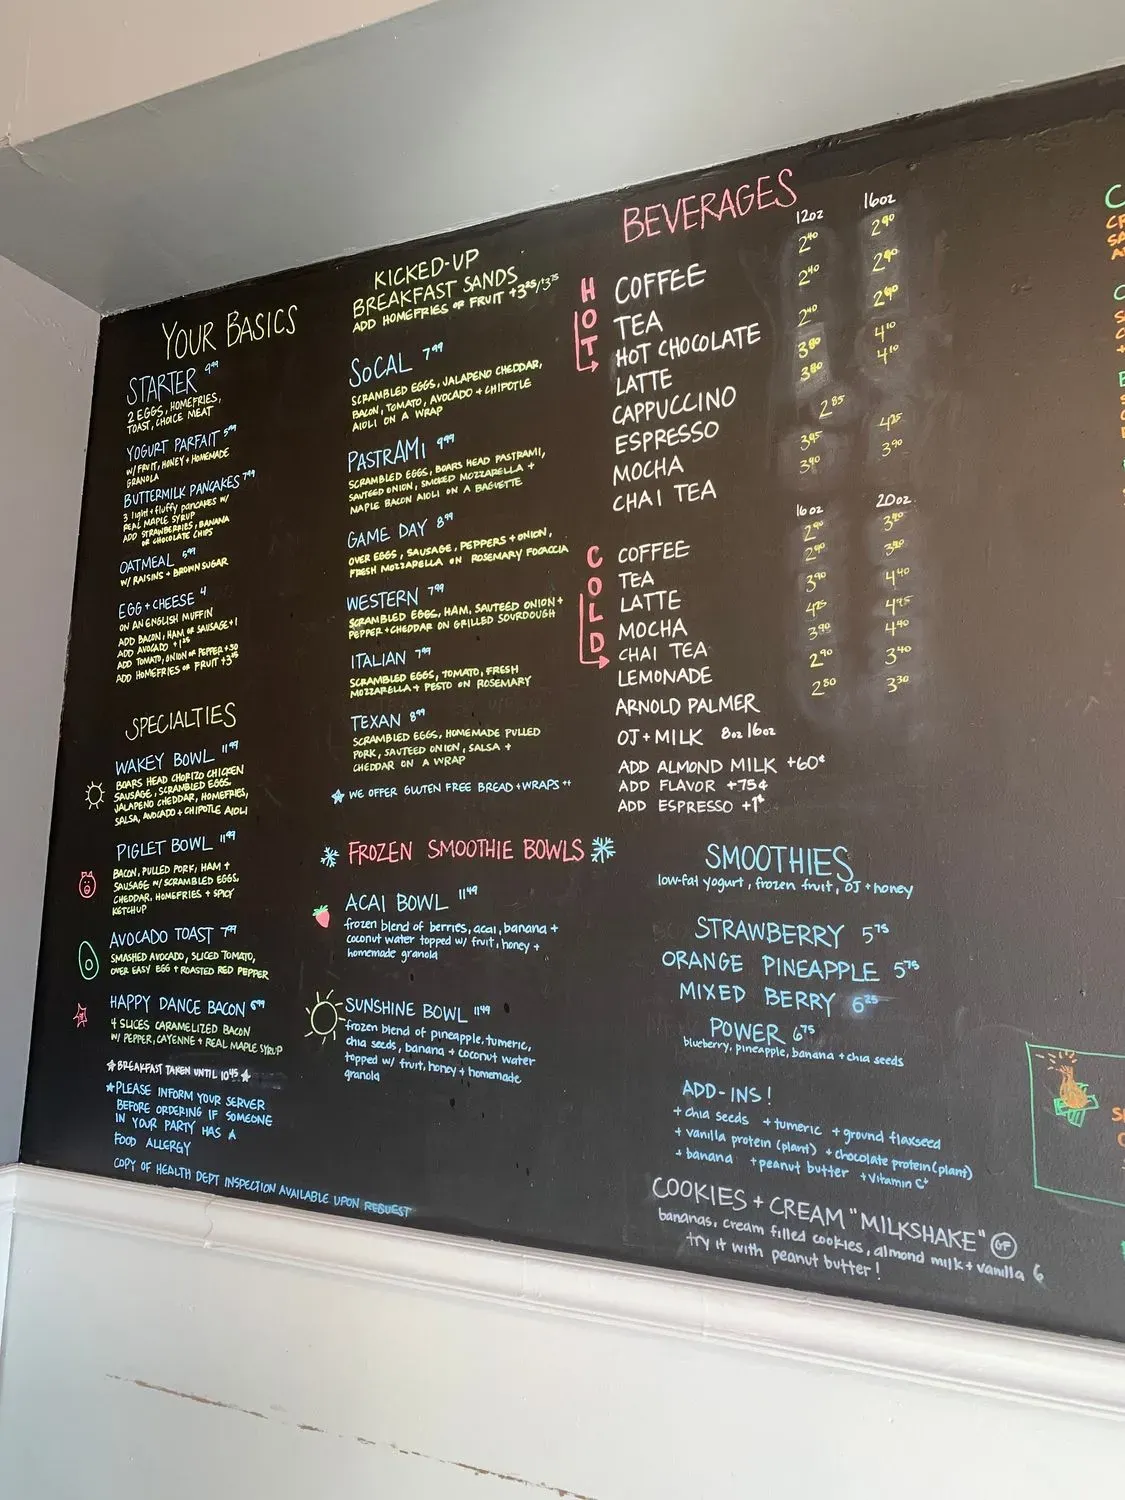 YOUR BASICS
STARTER 9⁹⁹
2 EGGS, HOMEFRIES,
TOAST, CHOICE MEAT
YOGURT PARFAIT 5⁹⁹
W/ FRUIT, HONEY + HOMEMADE
GRANOLA
BUTTERMILK PANCAKES 7⁹⁹
3 light + fluffy pancakes w/
REAL MAPLE SYRUP
ADD STRAWBERRIES, BANANA
OR CHOCOLATE CHIPS
OATMEAL 5⁹⁹
W/ RAISINS + BROWN SUGAR
EGG + CHEESE 4
ON AN ENGLISH MUFFIN
ADD BACON, HAM OR SAUSAGE +1
ADD AVOCADO +1²⁵
ADD TOMATO, ONION OR PEPPER +.50
ADD HOMEFRIES OR FRUIT +3²⁵
SPECIALTIES
WAKEY BOWL 11⁹⁹
BOARS HEAD CHORIZO CHICKEN
SAUSAGE, SCRAMBLED EGGS,
JALAPENO CHEDDAR, HOMEFRIES,
SALSA, AVOCADO + CHIPOTLE AIOLI
PIGLET BOWL 11⁹⁹
BACON, PULLED PORK, HAM +
SAUSAGE W/ SCRAMBLED EGGS,
CHEDDAR, HOMEFRIES + SPICY
KETCHUP
AVOCADO TOAST 7⁹⁹
SMASHED AVOCADO, SLICED TOMATO,
OVER EASY EGG + ROASTED RED PEPPER
HAPPY DANCE BACON 6⁹⁹
4 SLICES CARAMELIZED BACON
W/ PEPPER, CAYENNE + REAL MAPLE SYRUP
★ BREAKFAST TAKEN UNTIL 10⁴⁵ ★
★ PLEASE INFORM YOUR SERVER
BEFORE ORDERING IF SOMEONE
IN YOUR PARTY HAS A
FOOD ALLERGY
COPY OF HEALTH DEPT INSPECTION AVAILABLE UPON REQUEST
KICKED-UP
BREAKFAST SANDS
ADD HOMEFRIES OR FRUIT +3²⁵/+3⁷⁵
SOCAL 7⁹⁹
SCRAMBLED EGGS, JALAPENO CHEDDAR,
BACON, TOMATO, AVOCADO + CHIPOTLE
AIOLI ON A WRAP
PASTRAMI 9⁹⁹
SCRAMBLED EGGS, BOARS HEAD PASTRAMI,
SAUTEED ONION, SMOKED MOZZARELLA +
MAPLE BACON AIOLI ON A BAGUETTE
GAME DAY 8⁹⁹
OVER EGGS, SAUSAGE, PEPPERS + ONION,
FRESH MOZZARELLA ON ROSEMARY FOCACCIA
WESTERN 7⁹⁹
SCRAMBLED EGGS, HAM, SAUTEED ONION +
PEPPER + CHEDDAR ON GRILLED SOURDOUGH
ITALIAN 7⁹⁹
SCRAMBLED EGGS, TOMATO, FRESH
MOZZARELLA + PESTO ON ROSEMARY
TEXAN 8⁹⁹
SCRAMBLED EGGS, HOMEMADE PULLED
PORK, SAUTEED ONION, SALSA +
CHEDDAR ON A WRAP
★ WE OFFER GLUTEN FREE BREAD + WRAPS ++
FROZEN SMOOTHIE BOWLS
ACAI BOWL 11⁴⁹
frozen blend of berries, acai, banana +
coconut water topped w/ fruit, honey +
homemade granola
SUNSHINE BOWL 11⁴⁹
frozen blend of pineapple, turmeric,
chia seeds, banana + coconut water
topped w/ fruit, honey + homemade
granola
BEVERAGES
12oz 16oz
HOT
COFFEE 2⁴⁰ 2⁹⁰
TEA 2⁴⁰ 2⁹⁰
HOT CHOCOLATE 2⁴⁰ 2⁹⁰
LATTE 3⁸⁰ 4¹⁰
CAPPUCCINO 3⁸⁰ 4¹⁰
ESPRESSO 2⁸⁵
MOCHA 3⁹⁵ 4²⁵
CHAI TEA 3⁴⁰ 3⁹⁰
16oz 20oz
COLD
COFFEE 2⁹⁰ 3⁸⁰
TEA 2⁹⁰ 3⁸⁰
LATTE 3⁹⁰ 4⁴⁰
MOCHA 4²⁵ 4⁹⁵
CHAI TEA 3⁹⁰ 4⁴⁰
LEMONADE 2⁹⁰ 3⁴⁰
ARNOLD PALMER 2⁵⁰ 3³⁰
OJ + MILK 8oz 16oz
ADD ALMOND MILK +60¢
ADD FLAVOR +75¢
ADD ESPRESSO +1
SMOOTHIES
low-fat yogurt, frozen fruit, OJ + honey
STRAWBERRY 5⁷⁵
ORANGE PINEAPPLE 5⁷⁵
MIXED BERRY 6²⁵
POWER 6⁷⁵
blueberry, pineapple, banana + chia seeds
ADD-INS!
+ chia seeds + tumeric + ground flaxseed
+ vanilla protein (plant) + chocolate protein (plant)
+ banana + peanut butter + vitamin C
COOKIES + CREAM "MILKSHAKE" GF
bananas, cream filled cookies, almond milk + vanilla 6
try it with peanut butter!